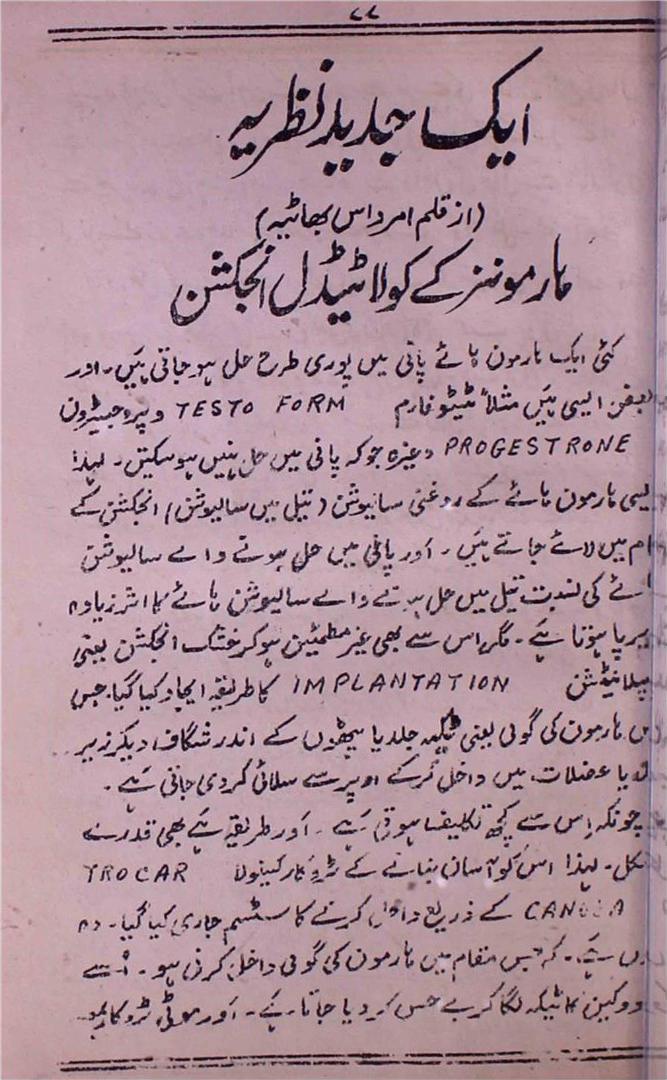 ۷۷
ایک جدید نظریہ
(از قلم امرداس بھاٹیہ)
ہارمونز کے کولائیڈل انجکشن
کئی ایک ہارمون ہائے پانی میں پوری طرح حل ہو جاتی ہیں۔ اور
بعض ایسی ہیں مثلاً ٹیٹو فارم TESTO FORM و پروجیسٹرون
PROGESTRONE وغیرہ جو کہ پانی میں حل نہیں ہو سکتیں۔ لہذا
ایسی ہارمون ہائے کے روغنی سالیوشن (تیل میں سالیوشن) انجکشن کے
کام میں لائے جاتے ہیں۔ اور پانی میں حل ہونے والے سالیوشن
ہائے کی نسبت تیل میں حل ہونے والے سالیوشن ہائے کا اثر زیادہ
دیر پا ہوتا ہے۔ مگر اس سے بھی غیر مطمئین ہو کر خشک انجکشن یعنی
IMPLANTATION کا طریقہ ایجاد کیا گیا، جس
میں ہارمون کی گولی یعنی ٹکیہ جلد یا پٹھوں کے اندر شگاف دیکر زیر
جلد یا عضلات میں داخل کرکے اوپر سے سلائی کردی جاتی ہے۔
چونکہ اس سے کچھ تکلیف ہوتی ہے۔ اور طریقہ ہے بھی قدرے
مشکل۔ لہذا اس کو آسان بنانے کے ٹروکار کینولا TROCAR
CANULA کے ذریعے داخل کرنے کا سسٹم جاری کیا گیا۔ وہ
یوں ہے۔ کہ جس مقام میں ہارمون کی گولی داخل کرنی ہو۔ اُسے
نووکین کا ٹیکہ لگا کر بے حس کر دیا جاتا ہے۔ اور موٹی ٹروکار